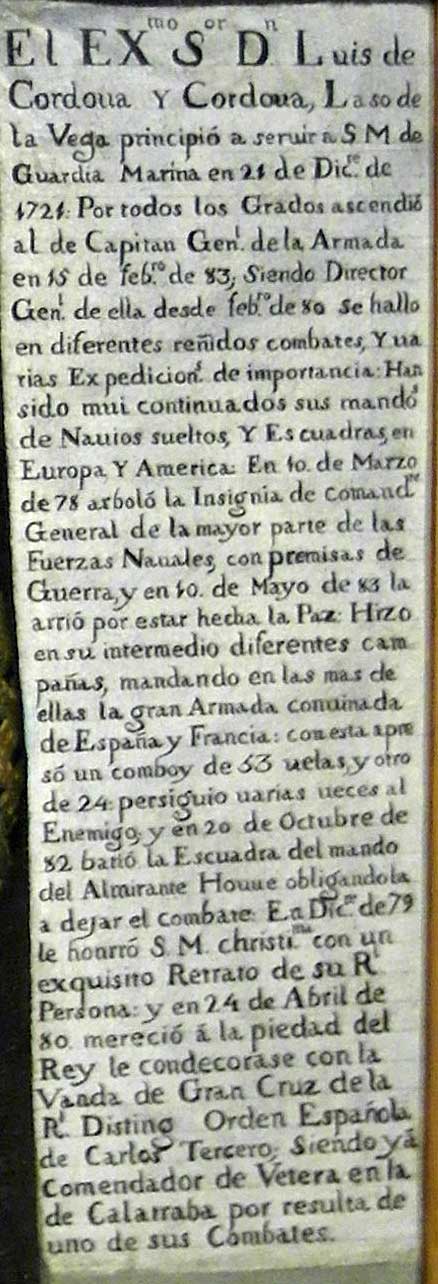 El EX.mo S.or D.n Luis de
Cordoua Y Cordoua, Laso de
la Vega principió a seruir a S M de
Guardia Marina en 21 de Dic.re de
1721: Por todos los Grados ascendió
al de Capitan Gen.l de la Armada
en 15 de feb.ro de 83, Siendo Director
Gen.l de ella desde feb.ro de 80 se hallo
en diferentes reñidos combates, Y ua
rias Expedicion.s de importancia: Han
sido mui continuados sus mando.s
de Nauios sueltos, Y Escuadras, en
Europa Y America: En 10. de Marzo
de 78 arboló la Insignia de comand.te
General de la mayor parte de las
Fuerzas Nauales, con premisas de
Guerra, y en 10. de Mayo de 83 la
arrió por estar hecha la Paz: Hizo
en su intermedio diferentes cam
pañas, mandando en las mas de
ellas la gran Armada conuinada
de España y Francia: con esta apre
só un comboy de 53 uelas, y otro
de 24: persiguio uarias ueces al
Enemigo, y en 20 de Octubre de
82 batió la Escuadra del mando
del Almirante Houue obligandola
a dejar el combate: En Dic.re de 79
le honrró S. M. christi.ma con un
exquisito Retrato de su R.l
Persona: y en 24 de Abril de
80. mereció á la piedad del
Rey le condecorase con la
Vanda de Gran Cruz de la
R.l Disting Orden Española
de Carlos Tercero, Siendo yá
Comendador de Vetera en la
de Calatraba por resulta de
uno de sus Combates.